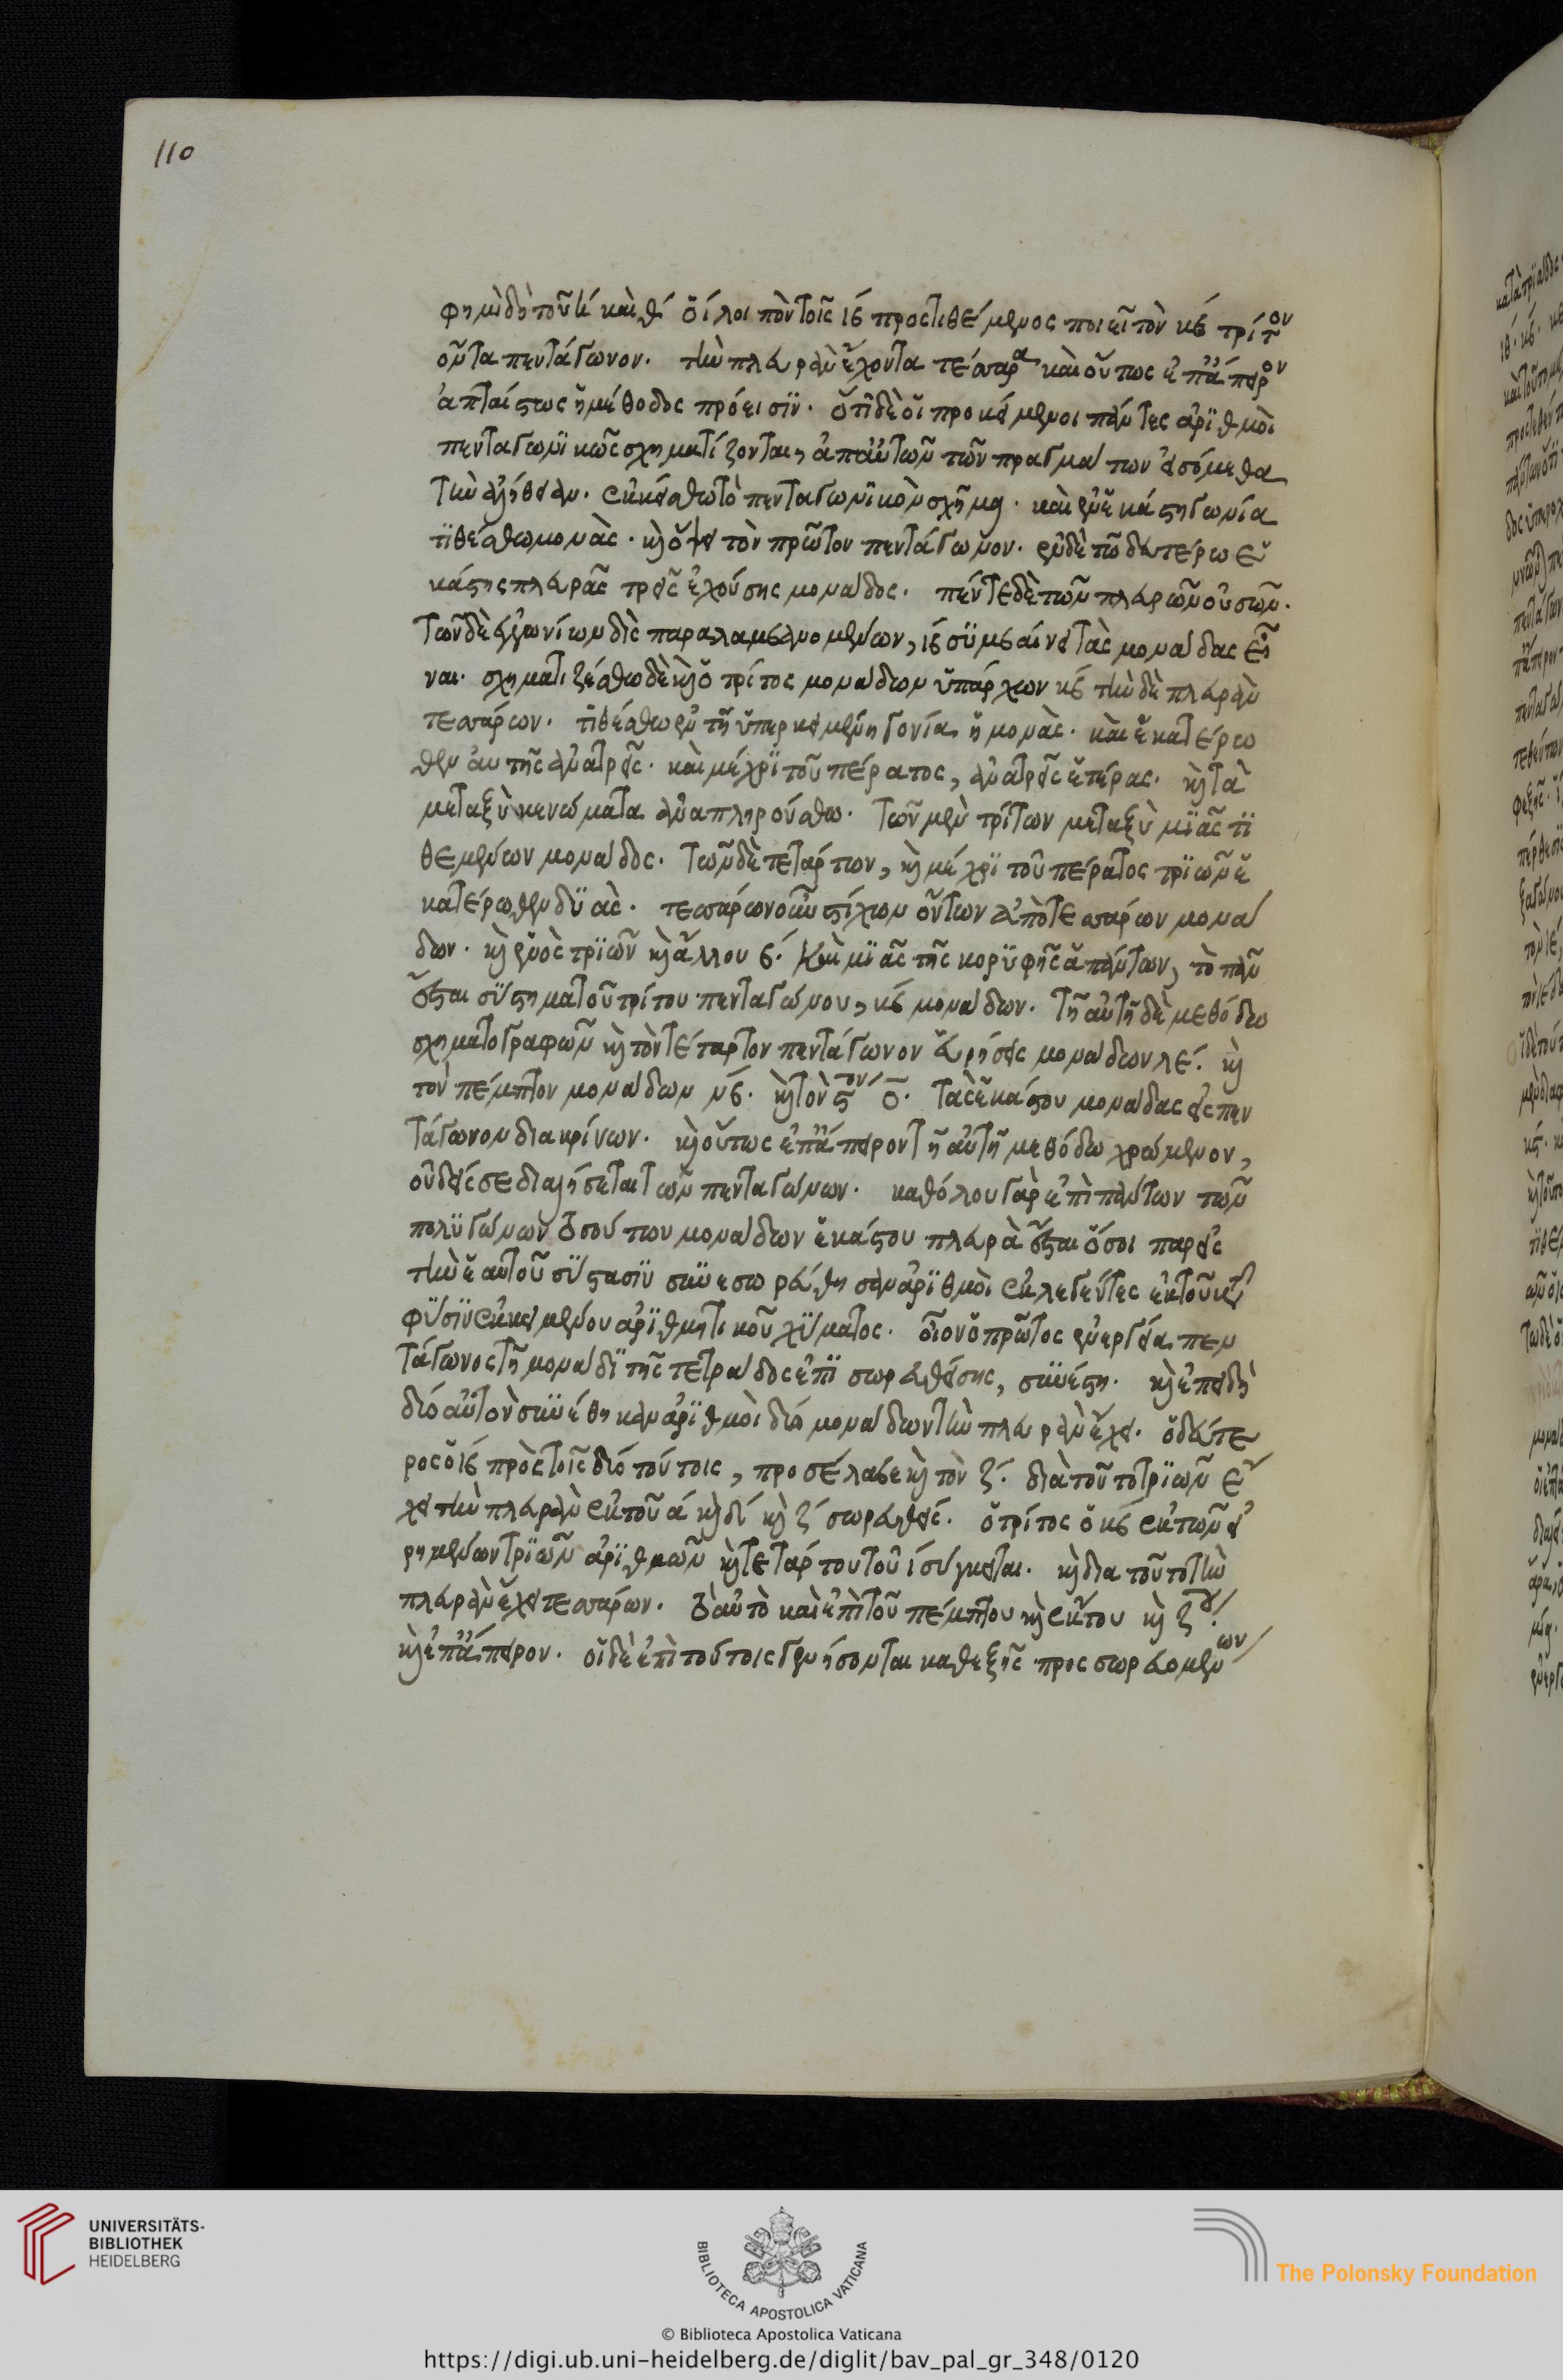 φημὶ δὴ τοῦ ί καὶ θ´ ὁ ί λοιπὸν τοῖς ιβ προστιθέμενος ποιεῖ τὸν κβ τρίτον
ὄντα πεντάγωνον. τὴν πλευρὰν ἔχοντα τέσσαρα καὶ οὕτως ἐπ' ἄπειρον
ἀπταίστως ἡ μέθοδος πρόεισιν. ὅτι δὲ οἱ προκείμενοι πάντες ἀριθμοὶ
πενταγωνικῶς σχηματίζονται, ἀπ' αὐτῶν τῶν πραγμάτων εἰσόμεθα
τὴν ἀλήθειαν. ἐκκείσθω τὸ πενταγωνικὸν σχῆμα. καὶ ἐν ἑκάστη γωνία
τιθέσθω μονὰς. καὶ ὄψει τὸν πρῶτον πεντάγωνον. ἐν δὲ τῶ δευτέρω ἑ
κάστης πλευρᾶς τρεῖς ἐχούσης μονάδος. πέντε δὲ τῶν πλευρῶν οὐσῶν.
τῶν δὲ γωνίων δὶς παραλαμβανομένων, ιβ συμβαίνει τὰς μονάδας εἶ
ναι. σχηματιζέσθω δὲ καὶ ὁ τρίτος μονάδων ὑπάρχων κβ τὴν δὲ πλευρὰν
τεσσάρων. τιθέσθω ἐν τῆ ὑπερκειμένη γονία ἡ μονὰς. καὶ ἑκατέρω
θεν αυτῆς ἀνὰ τρεῖς. καὶ μέχρι τοῦ πέρατος, ἀνὰ τρεῖς ἑτέρας. καὶ τὰ
μεταξὺ κενώματα ἀναπληρούσθω. τῶν μὲν τρίτων μεταξὺ μιᾶς τι
θεμένων μονάδος. τῶν δὲ τετάρτων, καὶ μέχρι τοῦ πέρατος τριῶν ἑ
κατέρωθεν δυὰς. τεσσάρων οὖν στίχων ὄντων ἀπὸ τεσσάρων μονά
δων. καὶ ἑνὸς τριῶν καὶ ἄλλου β. καὶ μιᾶς τῆς κορυφῆς ἁπάντων, τὸ πᾶν
ἔσται σύστημα τοῦ τρίτου πενταγώνου, κβ μονάδων. τῆ αὐτῆ δὲ μεθόδω
σχηματογραφῶν καὶ τὸν τέταρτον πεντάγωνον εὑρήσεις μονάδων λε. καὶ
τὸν πέμπτον μονάδων νβ. καὶ τὸν ϛον ο. τὰς ἑκάστου μονάδας εἰς πεν
τάγωνον διακρίνων. καὶ οὕτως ἐπ' ἄπειρον τῆ αὐτῆ μεθόδω χρώμενον,
οὐδείς σε διαλήσεται τῶν πενταγώνων. καθόλου γὰρ ἐπὶ πάντων τῶν
πολυγώνων τοσούτων μονάδων ἑκάστου πλευρὰ ἔσται ὅσοι παρ εἰς
τὴν ἑαυτοῦ σύστασιν συνεσωρεύθησαν ἀριθμοὶ ἐκλεγέντες ἐκ τοῦ κατὰ
φύσιν ἐκκειμένου ἀριθμητικοῦ χύματος. οἷον ὁ πρῶτος ἐνεργεία πεν
τάγωνος τῆ μονάδι τῆς τετράδος ἐπισωρευθείσης, συνέστη. καὶ ἐπειδὴ
δύο αὐτὸν συνέθηκαν ἀριθμοὶ δύο μονάδων τὴν πλευρὰν ἔχει. ὁ δεύτε
ρος ὁ ιβ πρὸς τοῖς δύο τούτοις, προσέλαβε καὶ τὸν ζ´. διὰ τοῦτο τριῶν ἔ
χει τὴν πλευρὰν ἐκ τοῦ ά καὶ δ´ καὶ ζ´ σωρευθείς. ὁ τρίτος ὁ κβ ἐκ τῶν εἰ
ρημένων τριῶν ἀριθμῶν καὶ τετάρτου τοῦ ί σύγκειται. καὶ δια τοῦτο τὴν
πλευρὰν ἔχει τεσσάρων. τὸ αὐτὸ καὶ ἐπὶ τοῦ πέμπτου καὶ ἕκτου καὶ ζου.
καὶ ἐπ' ἄπειρον. οἱ δὲ ἐπὶ τούτοις γενήσονται καθεξῆς προσσωρευομένων
110
UNIVERSITÄTS-
BIBLIOTHEK
HEIDELBERG
BIBLIOTECA APOSTOLICA VATICANA
The Polonsky Foundation
© Biblioteca Apostolica Vaticana
https://digi.ub.uni-heidelberg.de/diglit/bav_pal_gr_348/0120